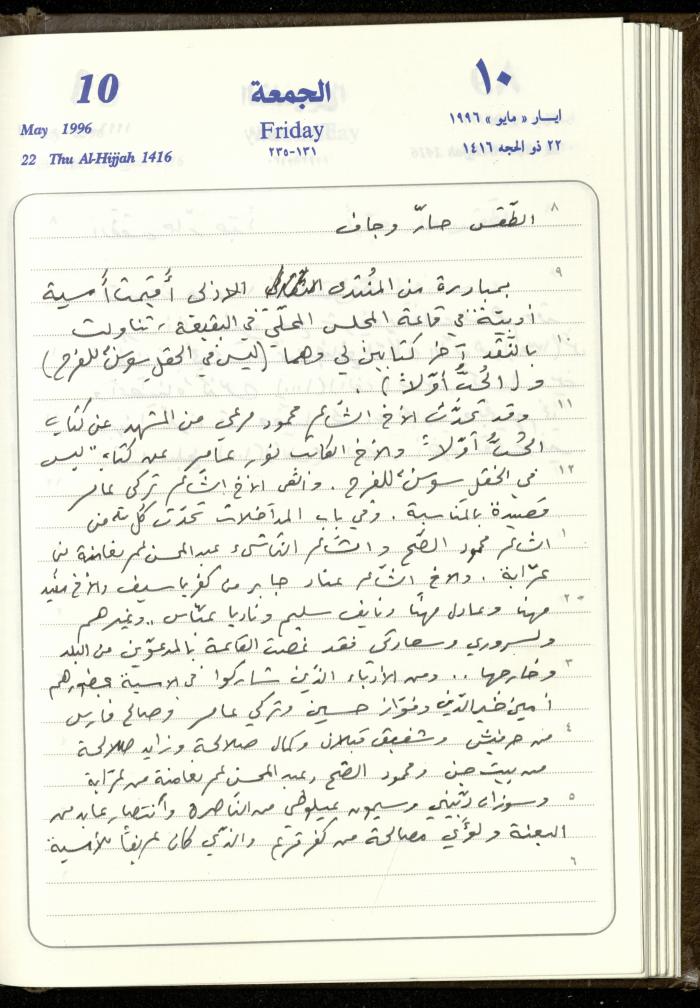 10
May 1996
22 Thu Al-Hijjah 1416
الجمعة
Friday
١٣١-٢٣٥
١٠
ايار « مايو » ١٩٩٦
٢٢ ذو الحجه ١٤١٦
٨
الطّقس حارّ وجاف
٩
بمبادرة من المُنتدى اللاذكى أُقيمت أُمسية
أدبيّة في قاعة المجلس المحلّي في البقيعة، تناولت
١٠
بالنّقد آخر كتابين لي وهما (ليس في الحقل سوسنٌ للفرح)
و (الحُبُّ أوّلاً).
١١
وقد تحدّث الأخ الشّاعر محمود مرعي من المشهد عن كتاب
الحُبُّ أوّلاً والأخ الكاتب نور عامر عن كتاب "ليس
١٢
في الحقل سوسنٌ للفرح. والقى الأخ الشّاعر تركي عامر
قصيدة بالمناسبة. وفي باب المداخلات تحدّث كلٌّ من
١
الشّاعر محمود الصّح والشّاعر النّاشىء عبد المحسن نعامنة من
عرّابة. والاخ الشّاعر عناد جابر من كفرياسيف والأخ مفيد
٢
مهنّا وعادل مهنّا ونايف سليم وناديا عبّاس.. وغيرهم
ولسروري وسعادتي فقد غصت القاعة بالمدعوّين من البلد
٣
وخارجها.. ومن الأدباء الّذين شاركوا في الامسية بحضورهم
أمين خير الدّين وفوّاز حسين وتركي عامر وصالح فارس
٤
من حرفيش وشفيق قبلان وكمال صلالحة وزايد صلالحة
من بيت جن ومحمود الصّح وعبد المحسن نعامنة من عرّابة
٥
وسوزان دبّيني وسيمون عيلوطي من النّاصرة وانتصار عابد من
البعنة ولؤي مصالحة من كفر قرع والّذي كان عريفاً للأمسية
٦